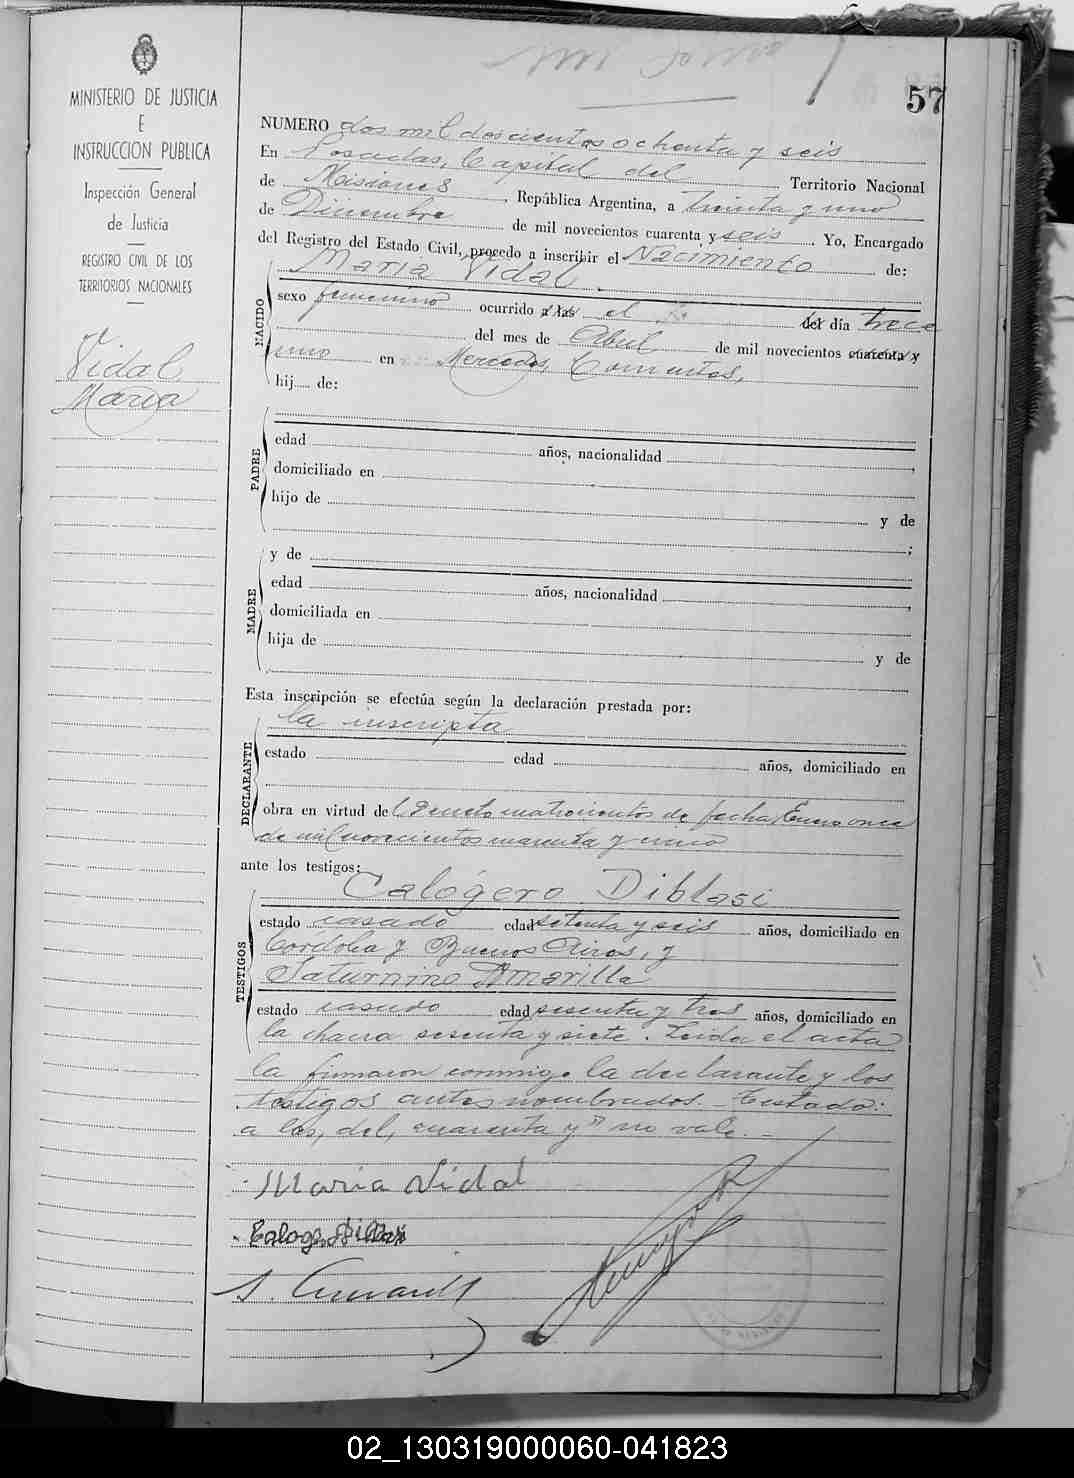 57
MINISTERIO DE JUSTICIA
E
INSTRUCCION PUBLICA
Inspección General
de Justicia
REGISTRO CIVIL DE LOS
TERRITORIOS NACIONALES
Vidal
Maria
NUMERO dos mil doscientos ochenta y seis
En Posadas, Capital del Territorio Nacional
de Misiones, República Argentina, a treinta y uno
de Diciembre de mil novecientos cuarenta y seis Yo, Encargado
del Registro del Estado Civil, procedo a inscribir el Nacimiento de:
Maria Vidal.
NACIDO
sexo femenino ocurrido a las el del día trece
del mes de Abril de mil novecientos cuarenta y
uno en Mercedes, Corrientes,
hij de:
PADRE
edad años, nacionalidad
domiciliado en
hijo de y de
;
MADRE
y de
edad años, nacionalidad
domiciliada en
hija de y de
Esta inscripción se efectúa según la declaración prestada por:
la inscripta
DECLARANTE
estado edad años, domiciliado en
obra en virtud del Decreto de fecha Enero once
de mil novecientos cuarenta y uno
ante los testigos:
Calógero Diblasi
TESTIGOS
estado casado edad setenta y seis años, domiciliado en
Córdoba y Buenos Aires, y
Saturnino Amarilla
estado casado edad sesenta y tres años, domiciliado en
la chacra sesenta y siete. Leida el acta
la firmaron conmigo la declarante y los
testigos antes nombrados. Testado:
a las, del, cuarenta y" no vale.-
Maria Vidal
02_130319000060-041823